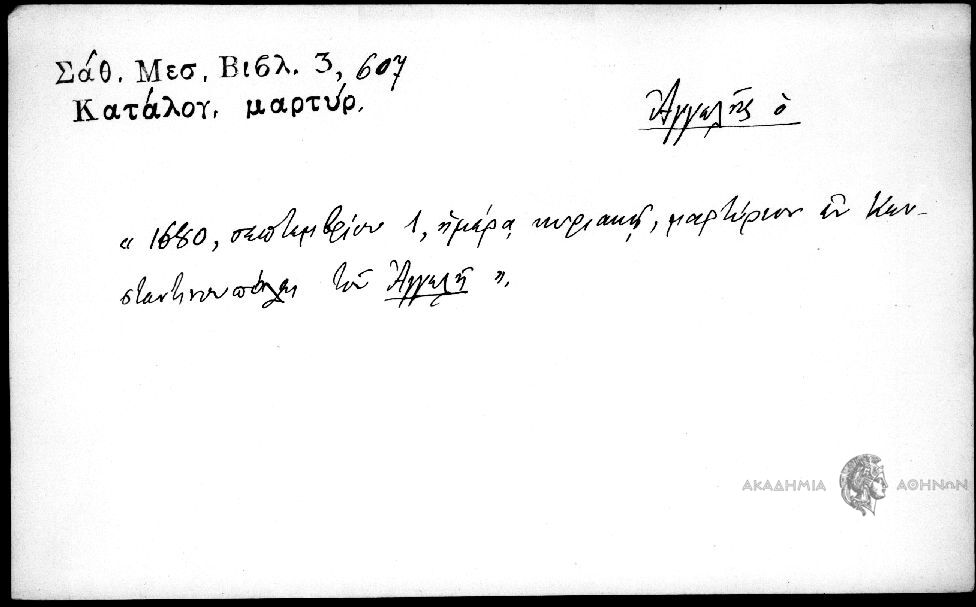 Σάθ. Μεσ. Βιβλ. 3, 607
Κατάλογ. μαρτύρ.
Ἀγγελῆς ὁ
« 1680, σεπτεμβρίου 1, ἡμέρᾳ κυριακῇ, μαρτύριον ἐν Κων-
σταντινουπόλει τοῦ Ἀγγελῆ ».
ΑΚΑΔΗΜΙΑ ΑΘΗΝΩΝ